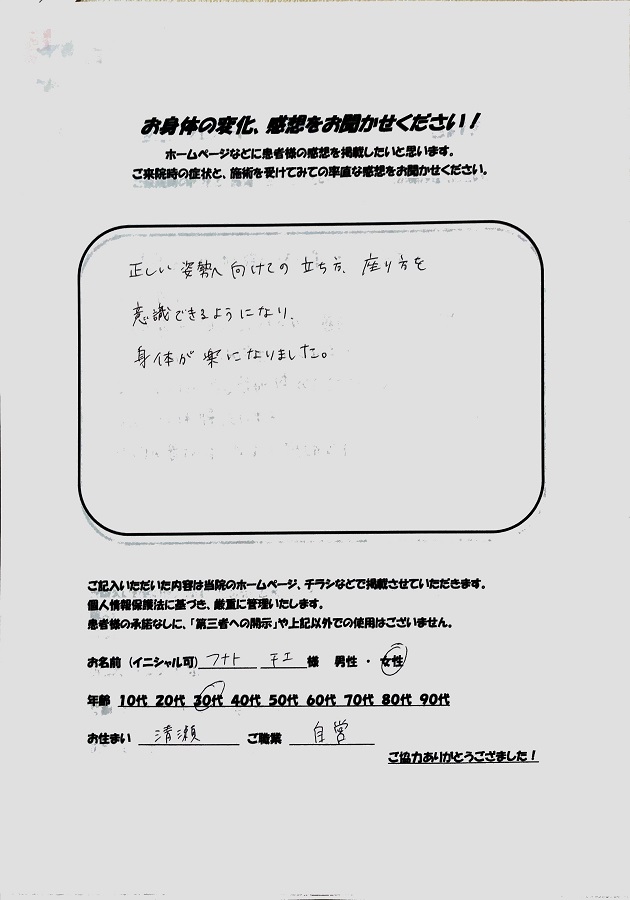 お身体の変化、感想をお聞かせください！
ホームページなどに患者様の感想を掲載したいと思います。
ご来院時の症状と、施術を受けてみての率直な感想をお聞かせください。
正しい姿勢へ向けての立ち方、座り方を
意識できるようになり、
身体が楽になりました。
ご記入いただいた内容は当院のホームページ、チラシなどで掲載させていただきます。
個人情報保護法に基づき、厳重に管理いたします。
患者様の承諾なしに、「第三者への開示」や上記以外での使用はございません。
お名前（イニシャル可） フナト チエ 様 男性 ・ 女性
年齢 10代 20代 30代 40代 50代 60代 70代 80代 90代
お住まい 清瀬 ご職業 自営
ご協力ありがとうござました！